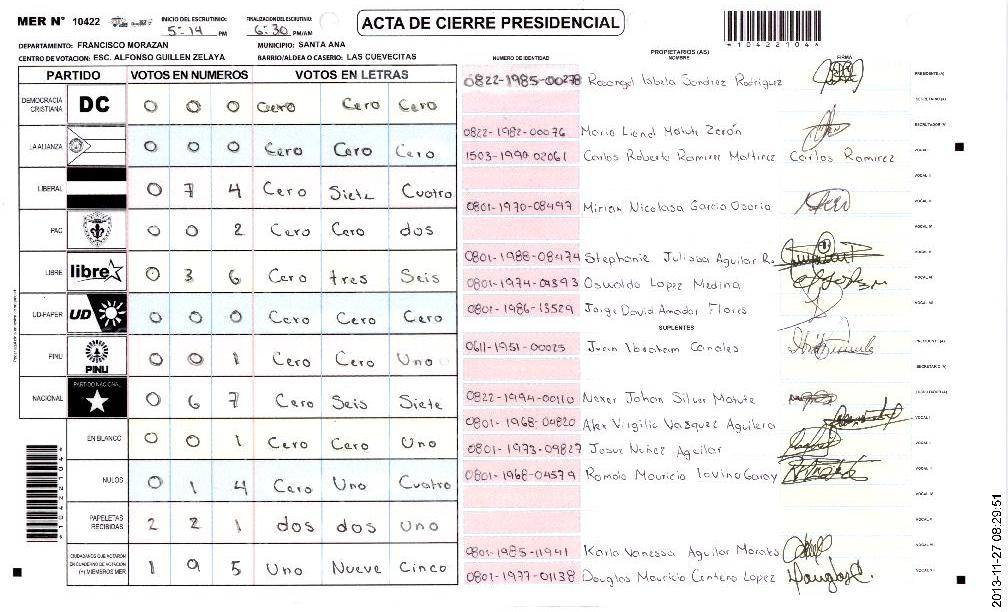 MER N° 10422
INICIO DEL ESCRUTINIO: 5:14 PM
FINALIZACION DEL ESCRUTINIO: 6:30 PM/AM
ACTA DE CIERRE PRESIDENCIAL
*104221044*
DEPARTAMENTO: FRANCISCO MORAZAN
MUNICIPIO: SANTA ANA
CENTRO DE VOTACION: ESC. ALFONSO GUILLEN ZELAYA
BARRIO/ALDEA O CASERIO: LAS CUEVECITAS
PARTIDO VOTOS EN NUMEROS VOTOS EN LETRAS
DEMOCRACIA CRISTIANA DC 0 0 0 Cero Cero Cero
LA ALIANZA 0 0 0 Cero Cero Cero
LIBERAL 0 7 4 Cero Siete Cuatro
PAC 0 0 2 Cero Cero dos
LIBRE libre 0 3 6 Cero tres Seis
UD-FAPER UD 0 0 0 Cero Cero Cero
PINU PINU 0 0 1 Cero Cero Uno
NACIONAL PARTIDO NACIONAL 0 6 7 Cero Seis Siete
EN BLANCO 0 0 1 Cero Cero Uno
NULOS 0 1 4 Cero Uno Cuatro
PAPELETAS RECIBIDAS 2 2 1 dos dos uno
CIUDADANOS QUE VOTARON EN CUADERNO DE VOTACION (+) MIEMBROS MER 1 9 5 Uno Nueve Cinco
PROPIETARIOS (AS)
NUMERO DE IDENTIDAD NOMBRE FIRMA
0822-1985-00278 Rosangel Isbela Sandrez Rodriguez PRESIDENTE (A)
SECRETARIO (A)
0822-1982-00076 Maria Lionel Matute Zerón ESCRUTADOR (A)
1503-1990-02061 Carlos Roberto Ramirez Martinez Carlos Ramirez VOCAL I
VOCAL II
0801-1970-08497 Mirian Nicolasa Garcia Osorio VOCAL III
0801-1988-08474 Stephanie Julissa Aguilar R.
0801-1974-04393 Oswaldo Lopez Medina
0801-1986-13529 Jorge David Amador Flores
SUPLENTES
0611-1951-00025 Juan Abraham Canales PRESIDENTE (A)
SECRETARIO (A)
0822-1994-00110 Nexer Johan Silver Matute ESCRUTADOR (A)
0801-1968-04820 Alex Virgilio Vasquez Aguilera VOCAL I
0801-1973-09827 Josue Nuñez Aguilar
0801-1968-04579 Romolo Mauricio Iovino Garay
0801-1985-11941 Karla Vanessa Aguilar Morales
0801-1977-01138 Douglas Mauricio Centeno Lopez
2013-11-27 08:29:51